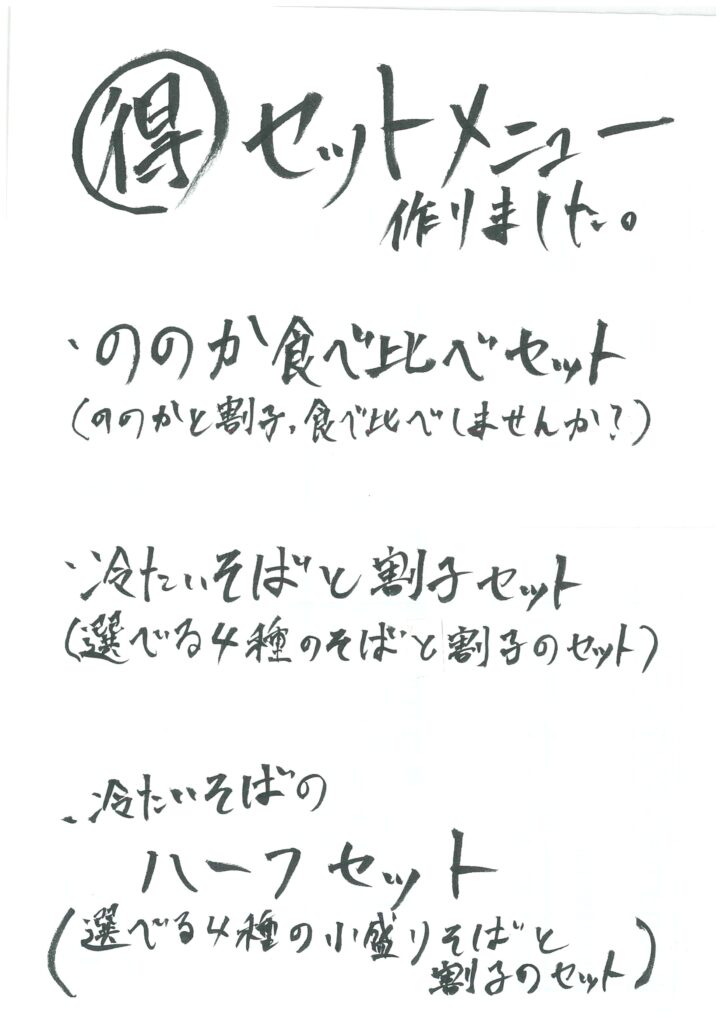 ㊝セットメニュー
作りました。
・ののか食べ比べセット
(ののかと割子、食べ比べしませんか?)
・冷たいそばと割子セット
(選べる4種のそばと割子のセット)
・冷たいそばの
ハーフセット
(選べる4種の小盛りそばと
割子のセット)